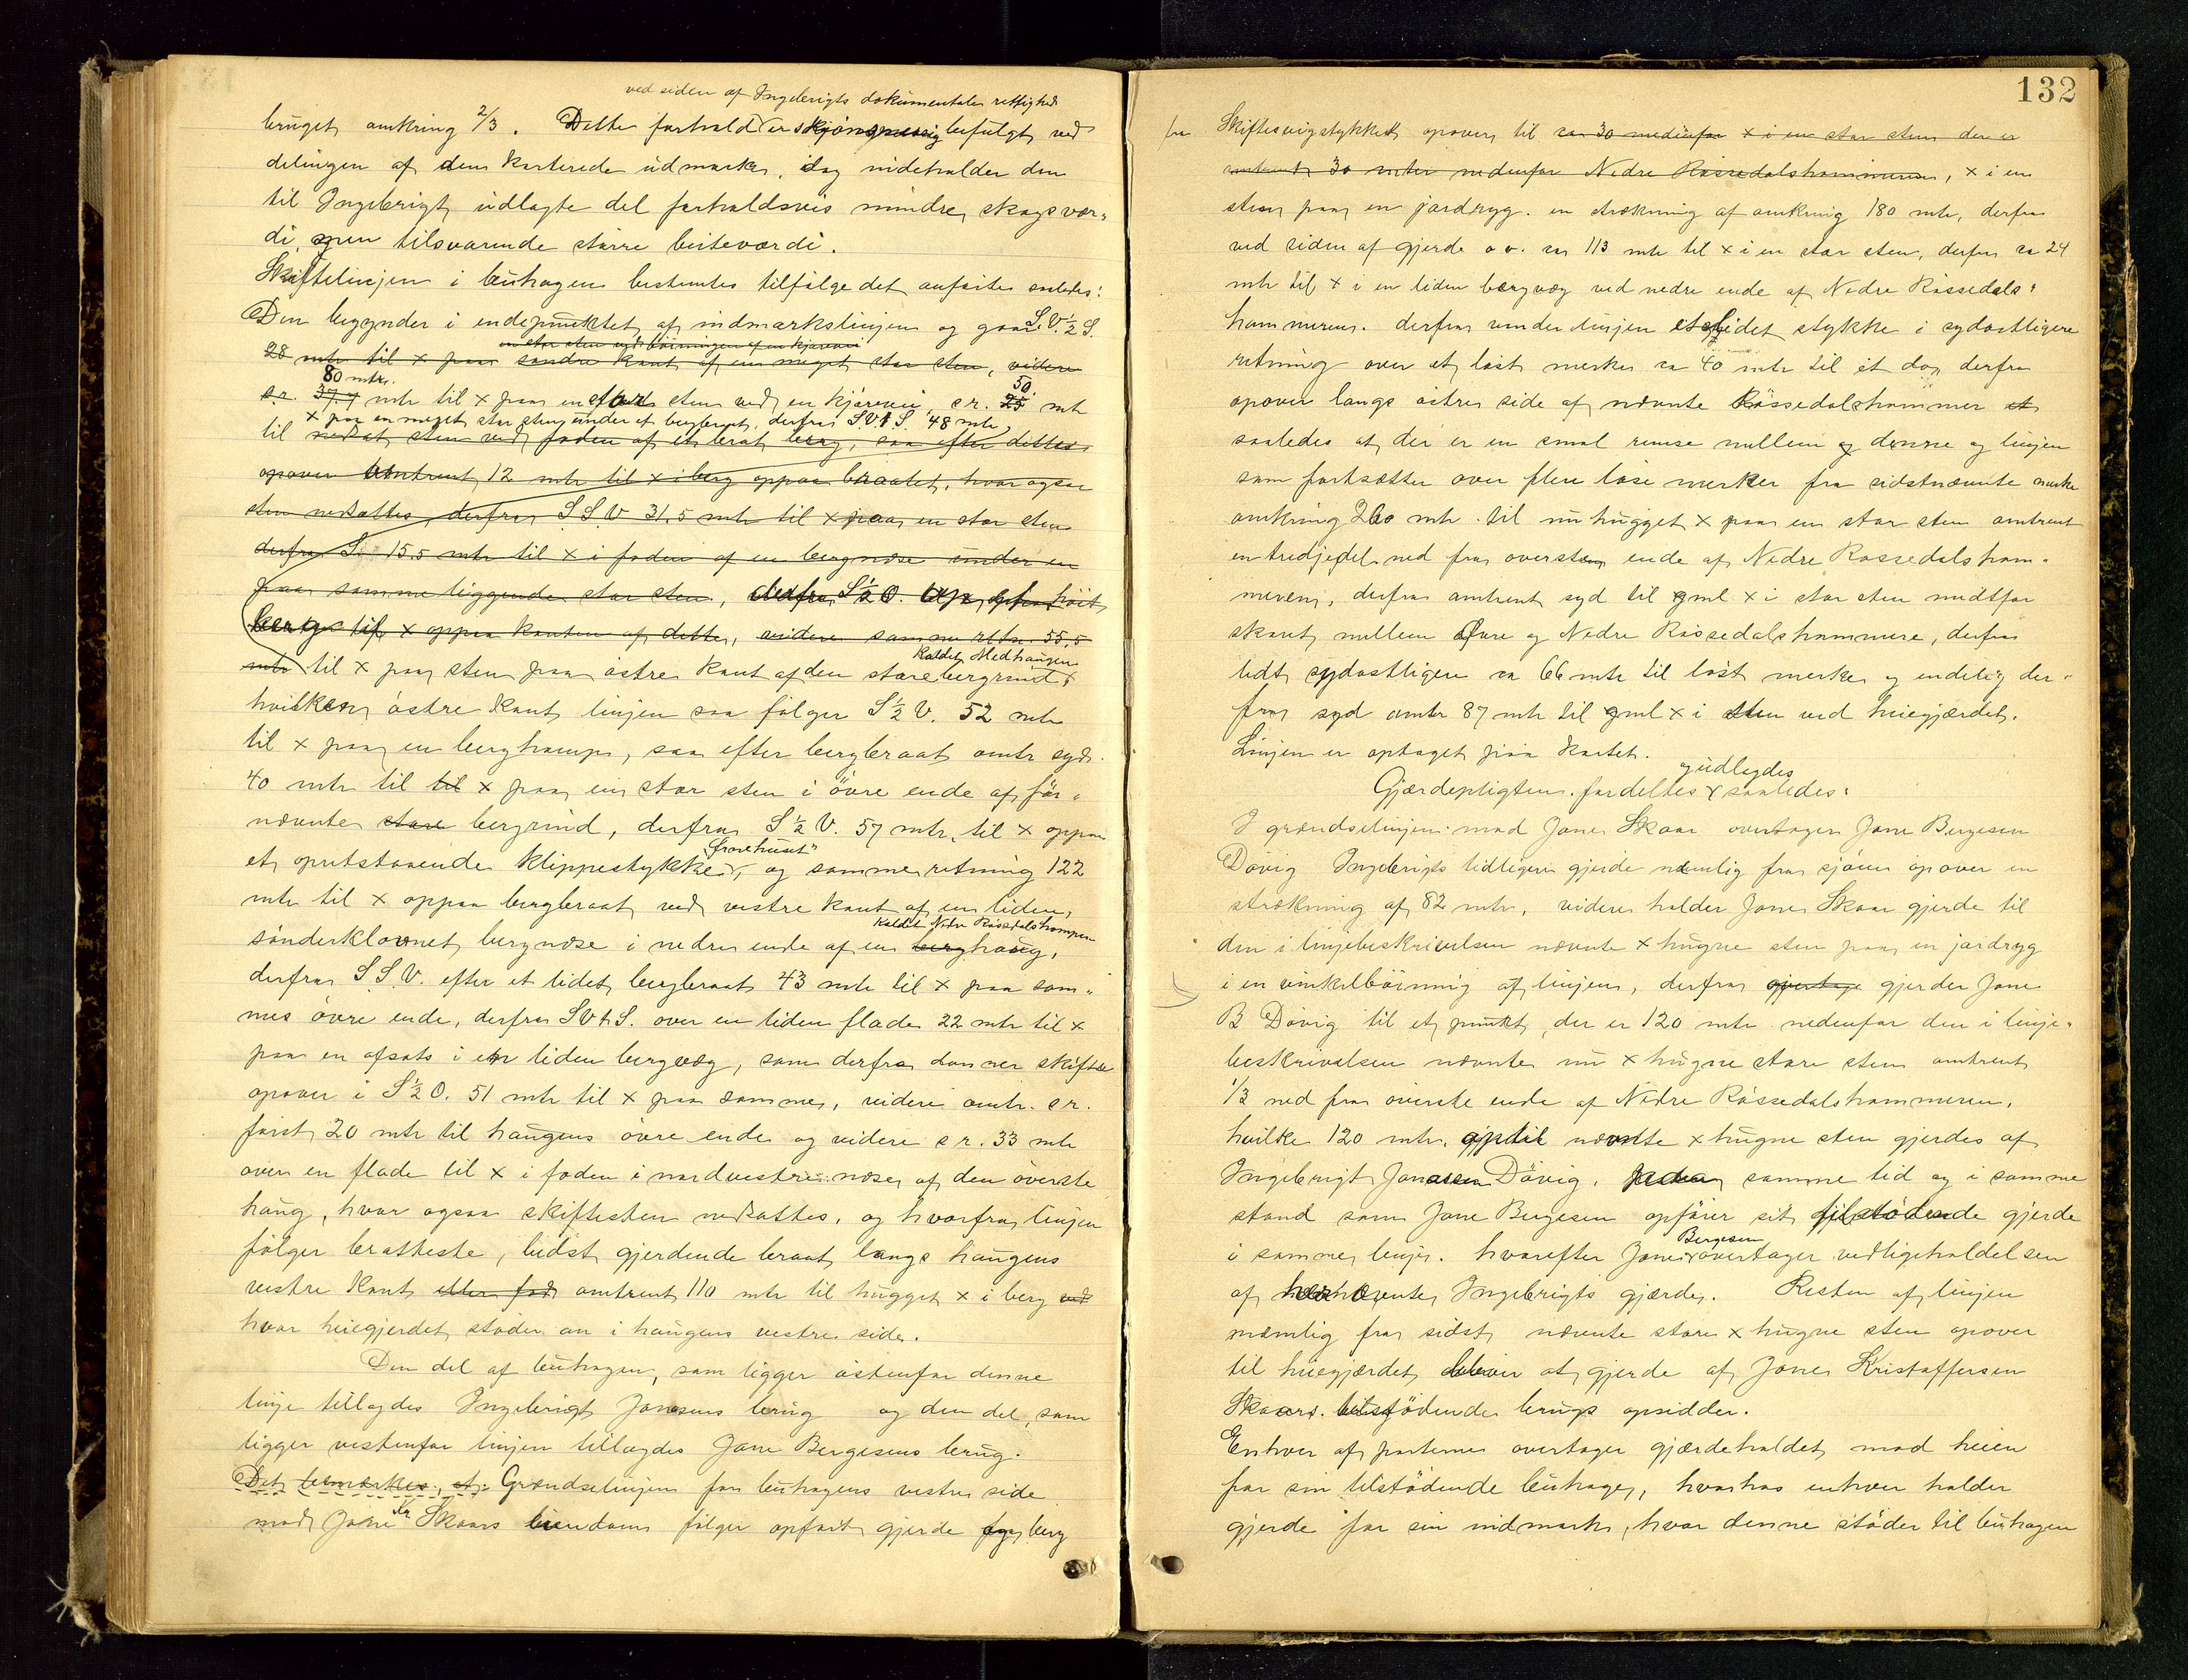 ved siden af Ingebrigts dokumentale rettighed
bruget omkring 2/3. Dette forhold er skjönsmessig befulgt ved
delingen af den karterede udmark, dog indeholder den
til Ingebrigt udlagte del forholdsvis mindre skogsvær-
di, men tilsvarende större beiteværdi.
Skiftelinjen i buhagen bestemtes tilfølge det anførte saaledes:
Den begynder i endepunktet af indmarkslinjen og gaar S.V.½S.
en stor sten ved böiningen af en kjørevei
28 mtr til x paa söndre kant af en meget stor sten, videre
80 mtr. 50
s.r. 37.7 mtr til x paa en stor sten ved en kjörevei, s.r. 25 mtr
x paa en meget stor sten under et bergbraat, derfra S.V.t.S. 48 mtr,
til nedsat sten ved foden af et brat berg, saa efter dettes
opover omtrent 12 mtr til x i berg oppaa braatet, hvor ogsaa
sten nedsattes, derfra S.S.V 31,5 mtr til x paa en stor sten
derfra S. 15,5 mtr til x i foden af en bergnøse under en
paa samme liggende stor sten, derfra S½O. höit
berg til x oppaa kanten af dette, videre samme retn. 55,5
kaldet Medhaugen
mtr til x paa sten paa östre kant af den store bergrind,
hvilken östre kant linjen saa fölger S½V. 52 mtr
til x paa en berghamp, saa efter bergbraat omtr syd.
40 mtr til til x paa en stor sten i övre ende af för-
nævnte store bergrind, derfra S½V. 57 mtr. til x oppaa
"Provehuset"
et opretstaaende klippestykke, og samme retning 122
mtr til x oppaa bergbraat ved vestre kant af en liden,
kaldet Nedre Rössedalshamren
sönderklovnet bergnøse i nedre ende af en berghaug,
derfra S.S.V. efter et lidet bergbraat 43 mtr til x paa sam-
mes övre ende, derfra SVtS. over en liden flade 22 mtr til x
paa en afsats i en liden bergvæg, som derfra danner skiftet
opover i S½O. 51 mtr til x paa samme, videre omtr. s.r.
först 20 mtr til haugens övre ende og videre s.r. 33 mtr
over en flade til x i foden i nordvestre nøse af den överste
haug, hvor ogsaa skiftesten nedsattes, og hvorfra linjen
fölger bratteste, bedst gjerdende braat langs haugens
vestre kant eller fod omtrent 110 mtr til hugget x i berg ved
hvor heiegjerdet støder an i haugens vestre side.
Den del af buhagen, som ligger östenfor denne
linje tillagdes Ingebrigt Jonasens brug og den del, som
ligger vestenfor linjen tillagdes Jone Bergesens brug.
Det bemærkes, at: Grændselinjen for buhagens vestre side
mod Jone Kr Skaars eiendom fölger opfört gjerde fra berg
132
fra Skiftesvigstykket opover til ca 30 nedenfor x i en stor sten der er
omtrent 30 meter nedenfor Nedre Rössedalshammeren, x i en
sten paa en jordryg. en strækning af omkring 180 mtr, derfra
ved siden af gjerde o.v. ca 113 mtr til x i en stor sten, derfra ca 24
mtr til x i en liden bergvæg ved nedre ende af Nedre Rössedals-
hammeren. derfra vender linjen et lidet stykke i sydostligere
retning over et löst merke ca 40 mtr til et do, derfra
opover langs östre side af nævnte Rössedalshammer et
saaledes at der er en smal remse mellem denne og linjen
som fortsætter over flere löse merker fra sidstnævnte merke
omkring 260 mtr. til nu hugget x paa en stor sten omtrent
en tredjedel ned fra øversten ende af Nedre Rossedalsham-
meren, derfra omtrent syd til gml x i stor sten midtfor
skaret mellem Övre og Nedre Rössedalshammere, derfra
lidt sydostligere ca 66 mtr til löst merke og endelig der-
fra syd omtr 87 mtr til gml x i sten ved heiegjærdet.
Linjen er optaget paa kartet.
og udlagdes
Gjærdepligten fordeltes saaledes:
I grændselinjen mod Jone Skaar overtager Jone Bergesen
Dövig Ingebrigts tidligere gjerde nemlig fra sjöen opover en
strækning af 82 mtr, videre holder Jone Skaar gjerde til
den i linjebeskrivelsen nævnte x hugne sten paa en jordryg
i en vinkelböining af linjen, derfra gjerder Jone
B Dövig til et punkt, der er 120 mtr nedenfor den i linje-
beskrivelsen nævnte nu x hugne store sten omtrent
1/3 ned fra överste ende af Nedre Rössedalshammeren,
hvilke 120 mtr. op til nævnte x hugne sten gjerdes af
Ingebrigt Jonassen Dövig, paa samme tid og i samme
stand som Jone Bergesen opförer sit tilstödende gjerde
Bergesen
i samme linje. hvorefter Jone overtager vedligeholdelsen
af hernævnte Ingebrigts gjærde. Resten af linjen
nemlig fra sidst nævnte store x hugne sten opover
til heiegjærdet bliver at gjerde af Jone Kristoffersen
Skaars tilstödende brugs opsidder.
Enhver af parterne overtager gjærdeholdet mod heien
for sin tilstödende buhage, hvorhos enhver holder
gjerde for sin indmark, hvor denne stöder til buhagen